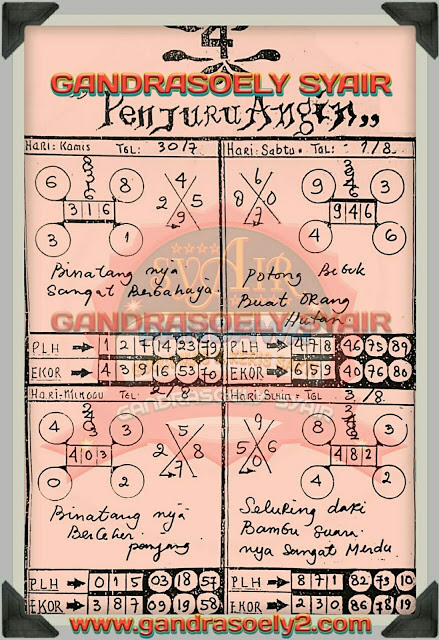 4
GANDRASOELY SYAIR
"Penjuru Angin"
Hari: Kamis TGL: 30/7
6 8
3 1 6
3 1
4
2 5
9
Binatang nya
Sangat Berbahaya.
PLH 1 2 7 14 23 79
EKOR 4 3 9 16 53 70
Hari: Sabtu. TGL: 1/8
9 3
9 4 6
4 6
6
8 0
7
Potong Bebek
Buat ORang
Hutan
PLH 4 7 8 46 75 89
EKOR 6 5 9 40 76 80
SYAIR
GANDRASOELY SYAIR
GANDRASOELY SYAIR
Hari: Minggu TGL: 2/8
4 3
4 0 3
0 2
5
2 8
7
Binatang nya
BerLeher
panjang
PLH 0 1 5 03 18 57
EKOR 3 8 7 09 19 58
Hari: Senin: TGL 3/8.
8 3
4 8 2
4 2
9
5 6
0
Seluring dari
Bambu Suara
nya Sangat Merdu
PLH 8 7 1 82 73 10
EKOR 2 3 0 86 78 19
www.gandrasoely2.com